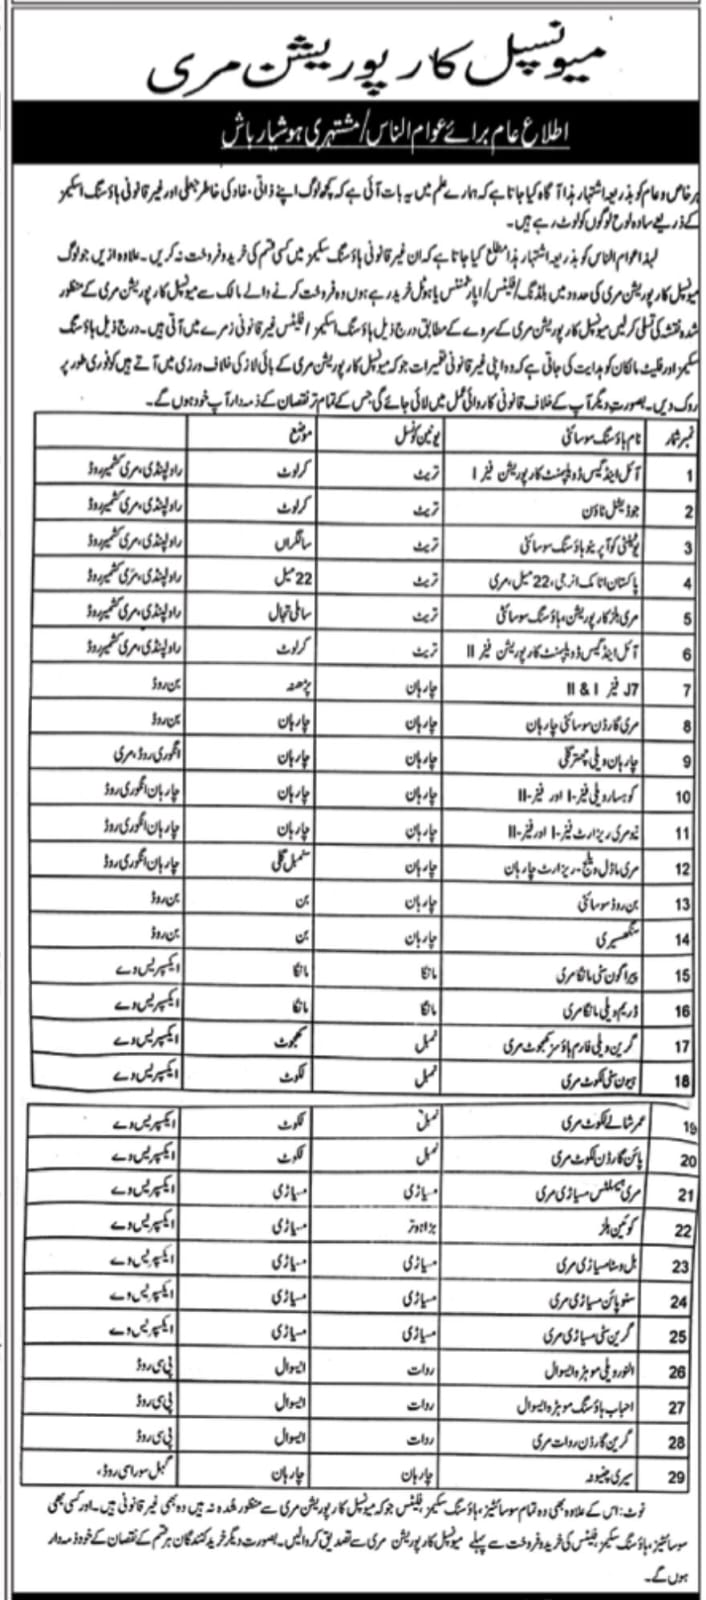 میونسپل کارپوریشن مری
اطلاع عام برائے عوام الناس/مشتہری ہوشیار باش
ہر خاص و عام کو بذریعہ اشتہار ہذا آگاہ کیا جاتا ہے کہ ہمارے علم میں یہ بات آئی ہے کہ کچھ لوگ اپنے ذاتی مفاد کی خاطر جعلی اور غیر قانونی ہاؤسنگ اسکیمز
کے ذریعے سادہ لوح لوگوں کو لوٹ رہے ہیں۔
لہٰذا عوام الناس کو بذریعہ اشتہار ہذا مطلع کیا جاتا ہے کہ ان غیر قانونی ہاؤسنگ سکیمز میں کسی قسم کی خرید و فروخت نہ کریں۔ علاوہ ازیں جو لوگ
میونسپل کارپوریشن مری کی حدود میں بلڈنگ/فلیٹس/اپارٹمنٹس یا ہوٹل خرید رہے ہوں وہ فروخت کرنے والے مالک سے میونسپل کارپوریشن مری کے منظور
شدہ نقشہ کی تسلی کر لیں میونسپل کارپوریشن مری کے سروے کے مطابق درج ذیل ہاؤسنگ اسکیمز/فلیٹس غیر قانونی زمرے میں آتی ہیں۔ درج ذیل ہاؤسنگ
سکیمز اور فلیٹ مالکان کو ہدایت کی جاتی ہے کہ وہ اپنی غیر قانونی تعمیرات جو کہ میونسپل کارپوریشن مری کے بائی لاز کی خلاف ورزی میں آتے ہیں کو فوری طور پر
روک دیں۔ بصورت دیگر آپ کے خلاف قانونی کاروائی عمل میں لائی جائے گی جس کے تمام تر نقصان کے ذمہ دار آپ خود ہوں گے۔
نمبر شمار نام ہاؤسنگ سوسائٹی یونین کونسل موضع
1 آئل اینڈ گیس ڈویلپمنٹ کارپوریشن فیز I تریٹ کرلوٹ راولپنڈی، مری کشمیر روڈ
2 جوڈیشل ٹاؤن تریٹ کرلوٹ راولپنڈی، مری کشمیر روڈ
3 یوٹیلٹی کوآپریٹو ہاؤسنگ سوسائٹی تریٹ سانگراں راولپنڈی، مری کشمیر روڈ
4 پاکستان اٹامک انرجی، 22 میل، مری تریٹ 22 میل راولپنڈی، مری کشمیر روڈ
5 مری ہلز کارپوریشن، ہاؤسنگ سوسائٹی تریٹ ساملی تجال راولپنڈی، مری کشمیر روڈ
6 آئل اینڈ گیس ڈویلپمنٹ کارپوریشن فیز II تریٹ کرلوٹ راولپنڈی، مری کشمیر روڈ
7 J7 فیز I & II چارہان پڑھنہ بن روڈ
8 مری گارڈن سوسائٹی چارہان چارہان چارہان بن روڈ
9 چارہان ویلی چھتر گلی چارہان چارہان انگوری روڈ، مری
10 کوہسار ویلی فیز-I اور فیز-II چارہان چارہان چارہان انگوری روڈ
11 نیو مری ریزارٹ فیز-I اور فیز-II چارہان چارہان چارہان انگوری روڈ
12 مری ماڈل ویلج، ریزارٹ چارہان چارہان سنمبل گلی چارہان انگوری روڈ
13 بن روڈ سوسائٹی چارہان بن بن روڈ
14 چارہان بن بن روڈ
15 پیراگون سٹی مانگا مری مانگا مانگا ایکسپریس وے
16 ڈریم ویلی مانگا مری مانگا مانگا ایکسپریس وے
17 گرین ویلی فارم ہاؤسز کھجوٹ مری نمبل کھجوٹ ایکسپریس وے
18 ہیون سٹی لکوٹ مری نمبل لکوٹ ایکسپریس وے
19 عمر شالے لکوٹ مری نمبل لکوٹ ایکسپریس وے
20 پائن گارڈن لکوٹ مری نمبل لکوٹ ایکسپریس وے
21 مری ہیملٹس مسیاڑی مری مسیاڑی مسیاڑی ایکسپریس وے
22 کوئین ہلز مسیاڑی ایکسپریس وے
23 ہل وسٹا مسیاڑی مری مسیاڑی مسیاڑی ایکسپریس وے
24 سنو پائن مسیاڑی مری مسیاڑی مسیاڑی ایکسپریس وے
25 گرین سٹی مسیاڑی مری مسیاڑی مسیاڑی ایکسپریس وے
26 النور ویلی موہڑہ ایسوال روات ایسوال پی سی روڈ
27 احباب ہاؤسنگ موہڑہ ایسوال روات ایسوال پی سی روڈ
28 گرین گارڈن روات مری روات ایسوال پی سی روڈ
29 سیری چارہان چارہان گہل سوراسی روڈ،
نوٹ: اس کے علاوہ بھی وہ تمام سوسائٹیز، ہاؤسنگ سکیمز، فلیٹس جو کہ میونسپل کارپوریشن مری سے منظور شدہ نہ ہیں وہ بھی غیر قانونی ہیں۔ اور کسی بھی
سوسائٹیز، ہاؤسنگ سکیمز، فلیٹس کی خرید و فروخت سے پہلے میونسپل کارپوریشن مری سے تصدیق کروا لیں۔ بصورت دیگر خرید کنندگان ہر قسم کے نقصان کے خود ذمہ دار
ہوں گے۔